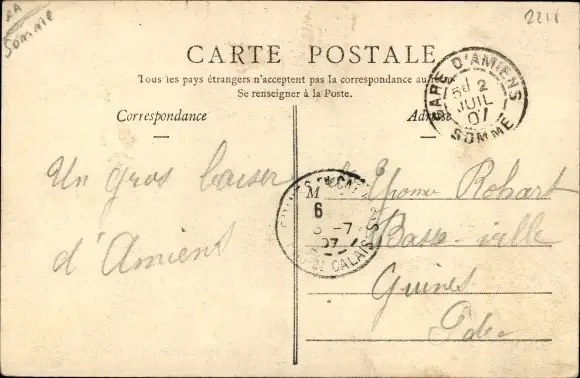 AA
Somme
2211
CARTE POSTALE
Tous les pays étrangers n'acceptent pas la correspondance au
Se renseigner à la Poste.
Correspondance
Adresse
GARE D'AMIENS
2
JUIL
07
SOMME
Un gros baiser
d'Amiens
M
6
-7
07
CALAIS
Robart
Basse-ville
Guines
Pdec